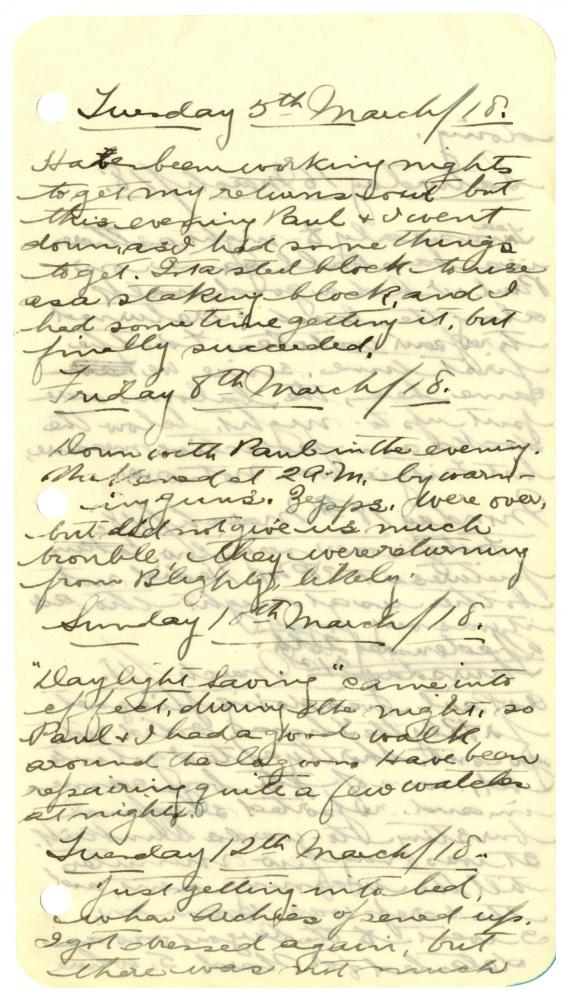 Tuesday 5th March/18.
Have been working nights
to get my returns out but
this evening Paul & I went
down, as I had some things
to get. Got a steel block to use
as a staking block, and I
had some time getting it, but
finally succeeded.
Friday 8th March/18.
Down with Paul in the evening.
at 2 A.M. by warn-
ing guns. Zepps. were over,
but did not give us much
trouble, they were returning
from Blighty, likely.
Sunday 10th March/18.
"Daylight Saving" came into
effect, during the night, so
Paul & I had a good walk
around the lagoon. Have been
repairing quite a few watches
at nights.
Tuesday 12th March/18.
Just getting into bed,
when Archies opened up.
I got dressed again, but
there was not much